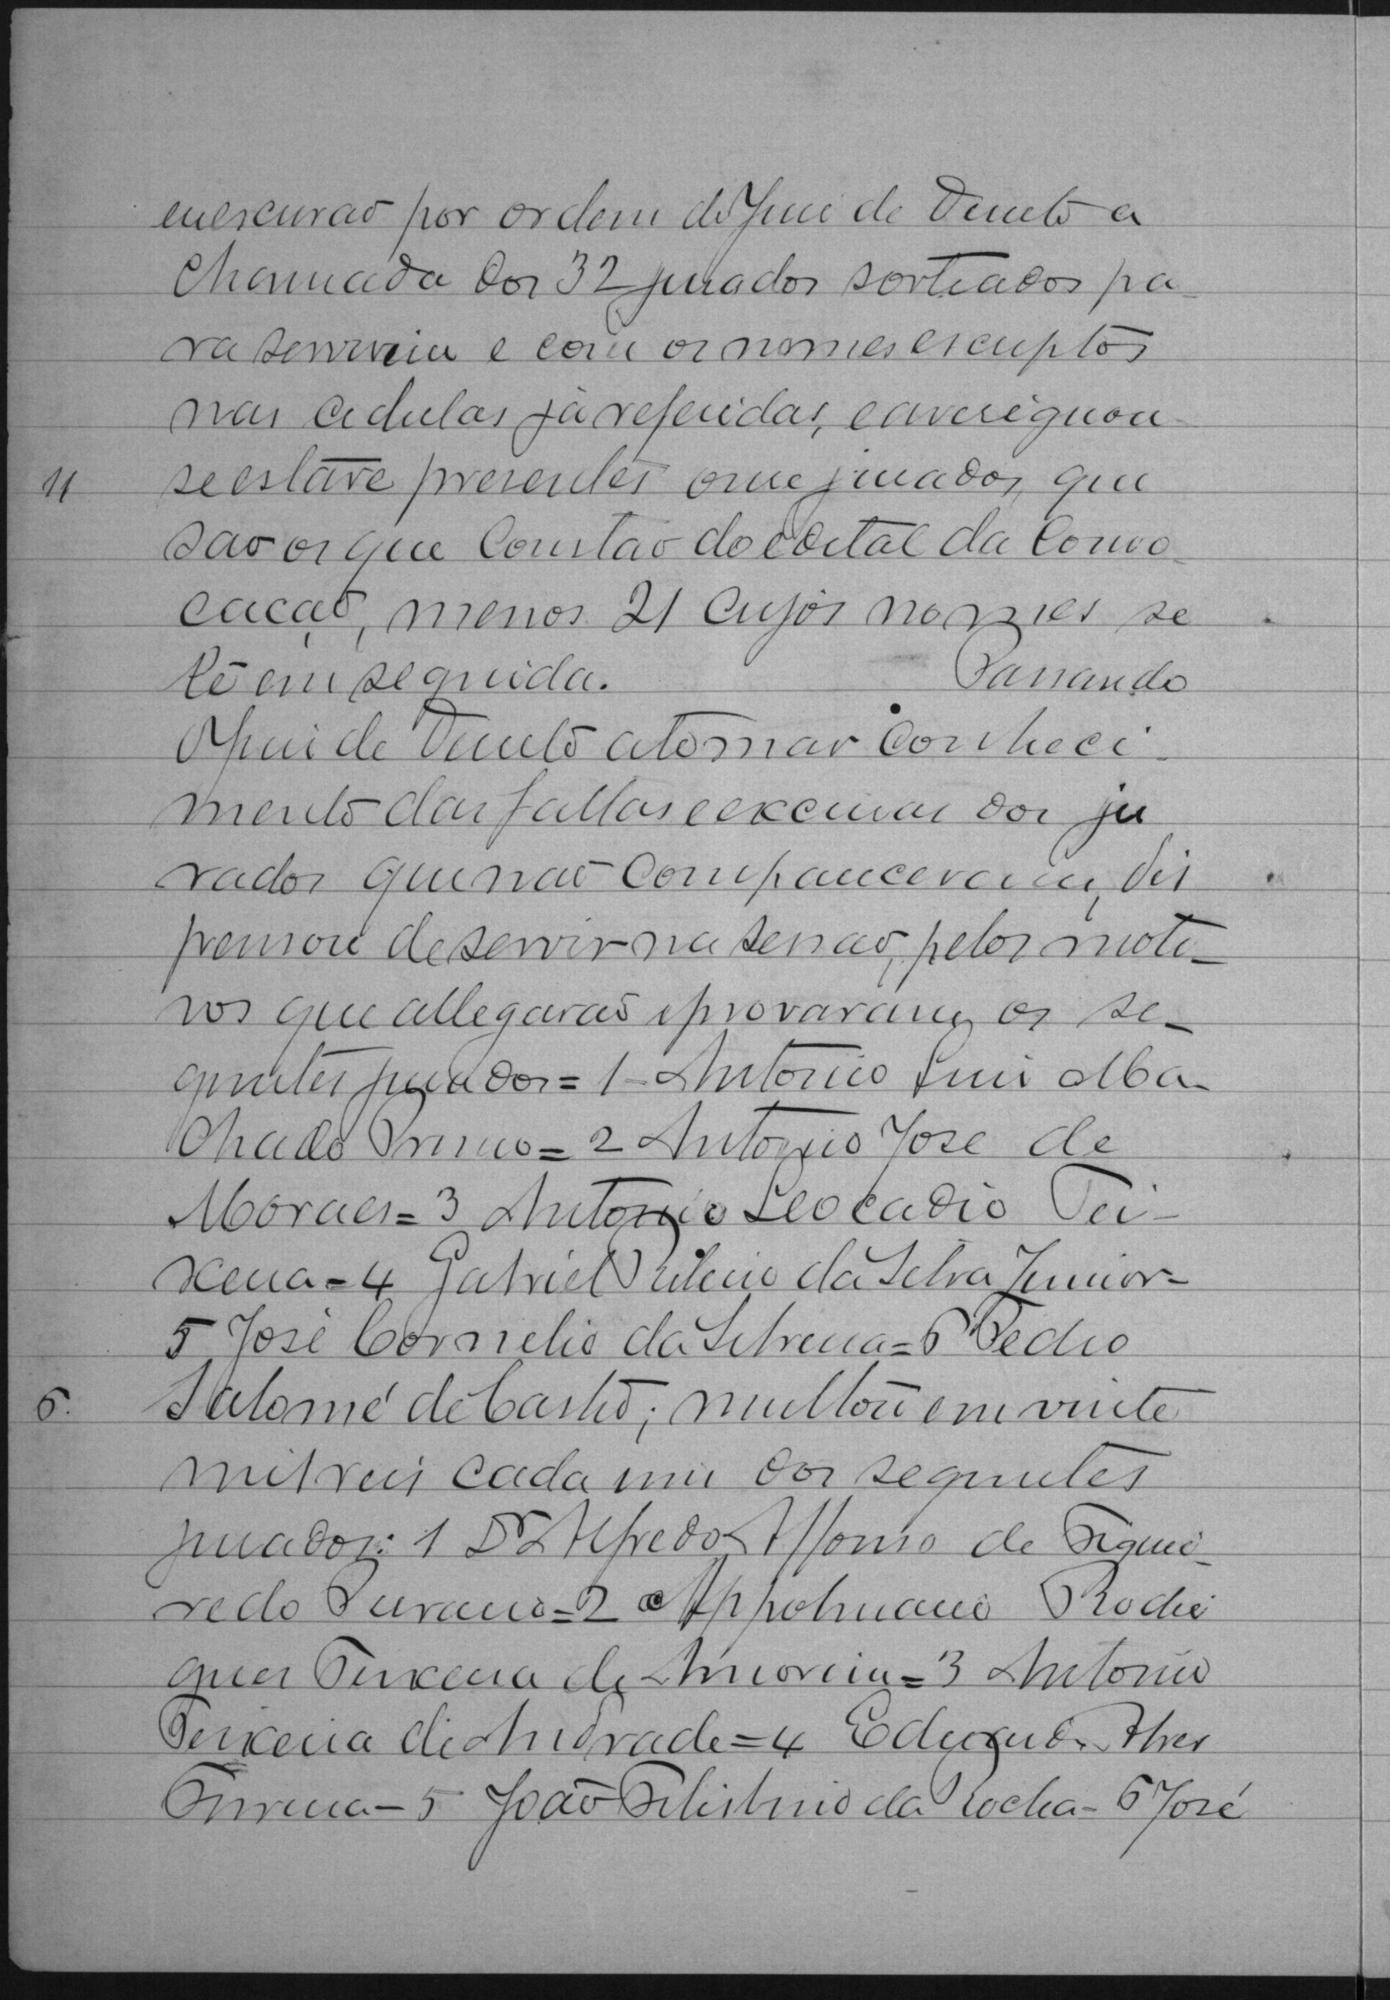 eu escrivaõ por ordem do Juiz de Direito a
chamada dos 32 jurados sorteados pa-
ra servirem e com os nomes escriptos
nas cedulas já referidas, e averiguou-
11 se estare presentes onze jurados, que
saõ os que constaõ do edital da convo-
cacaõ, menos 21 cujos nomes se
lê em seguida. Passando
o Juiz de Direito a tomar conheci-
mento das faltas e excusas dos ju
rados que naõ compareceram, dis
pensou de servir na sessaõ, pelos moti-
vos que allegaraõ e provaram os se-
guintes jurados = 1 - Antonio Luiz Ma-
chado Primo = 2 Antonio José de
Moraes = 3 Antonio Leocadio Tei-
xeira = 4 Gabriel da Silva Junior -
5 José Cornelio da Silveira = 6 Pedro
6. Salomé de Castro; multou em vinte
mil reis cada um dos seguintes
jurados: 1 Dr Alfredo Affonso de Figuei-
redo = 2 Appolinario Rodri
gues Teixeira de Amorim = 3 Antonio
Teixeira de Andrade = 4 Eduardo Alves
- 5 João Felisbino da Rocha - 6 José